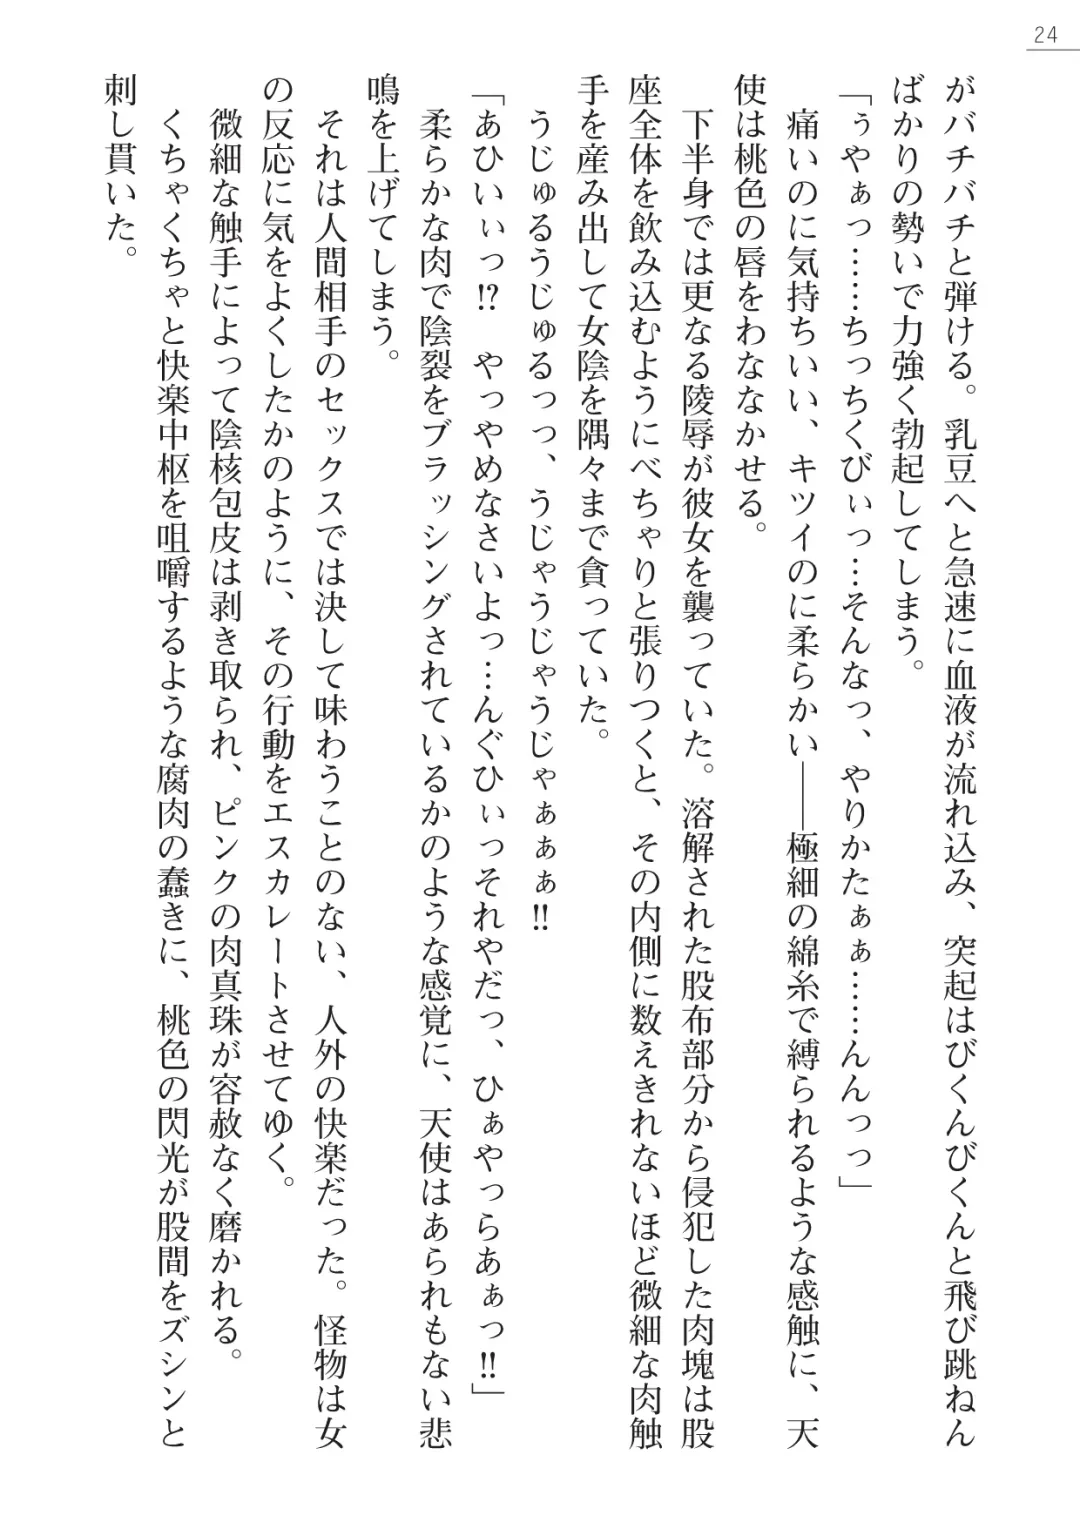 24
がバチバチと弾ける。乳豆へと急速に血液が流れ込み、突起はびくんびくんと飛び跳ねん
ばかりの勢いで力強く勃起してしまう。
「ぅやぁっ……ちっちくびぃっ…そんなっ、やりかたぁぁ……んんっっ」
痛いのに気持ちいい、キツイのに柔らかい――極細の綿糸で縛られるような感触に、天
使は桃色の唇をわななかせる。
下半身では更なる陵辱が彼女を襲っていた。溶解された股布部分から侵犯した肉塊は股
座全体を飲み込むようにべちゃりと張りつくと、その内側に数えきれないほど微細な肉触
手を産み出して女陰を隅々まで貪っていた。
うじゅるうじゅるっっ、うじゃうじゃうじゃぁぁぁ!!
「あひいぃっ!?　やっやめなさいよっ…んぐひぃっそれやだっ、ひぁやっらあぁっ!!」
柔らかな肉で陰裂をブラッシングされているかのような感覚に、天使はあられもない悲
鳴を上げてしまう。
それは人間相手のセックスでは決して味わうことのない、人外の快楽だった。怪物は女
の反応に気をよくしたかのように、その行動をエスカレートさせてゆく。
微細な触手によって陰核包皮は剥き取られ、ピンクの肉真珠が容赦なく磨かれる。
くちゃくちゃと快楽中枢を咀嚼するような腐肉の蠢きに、桃色の閃光が股間をズシンと
刺し貫いた。